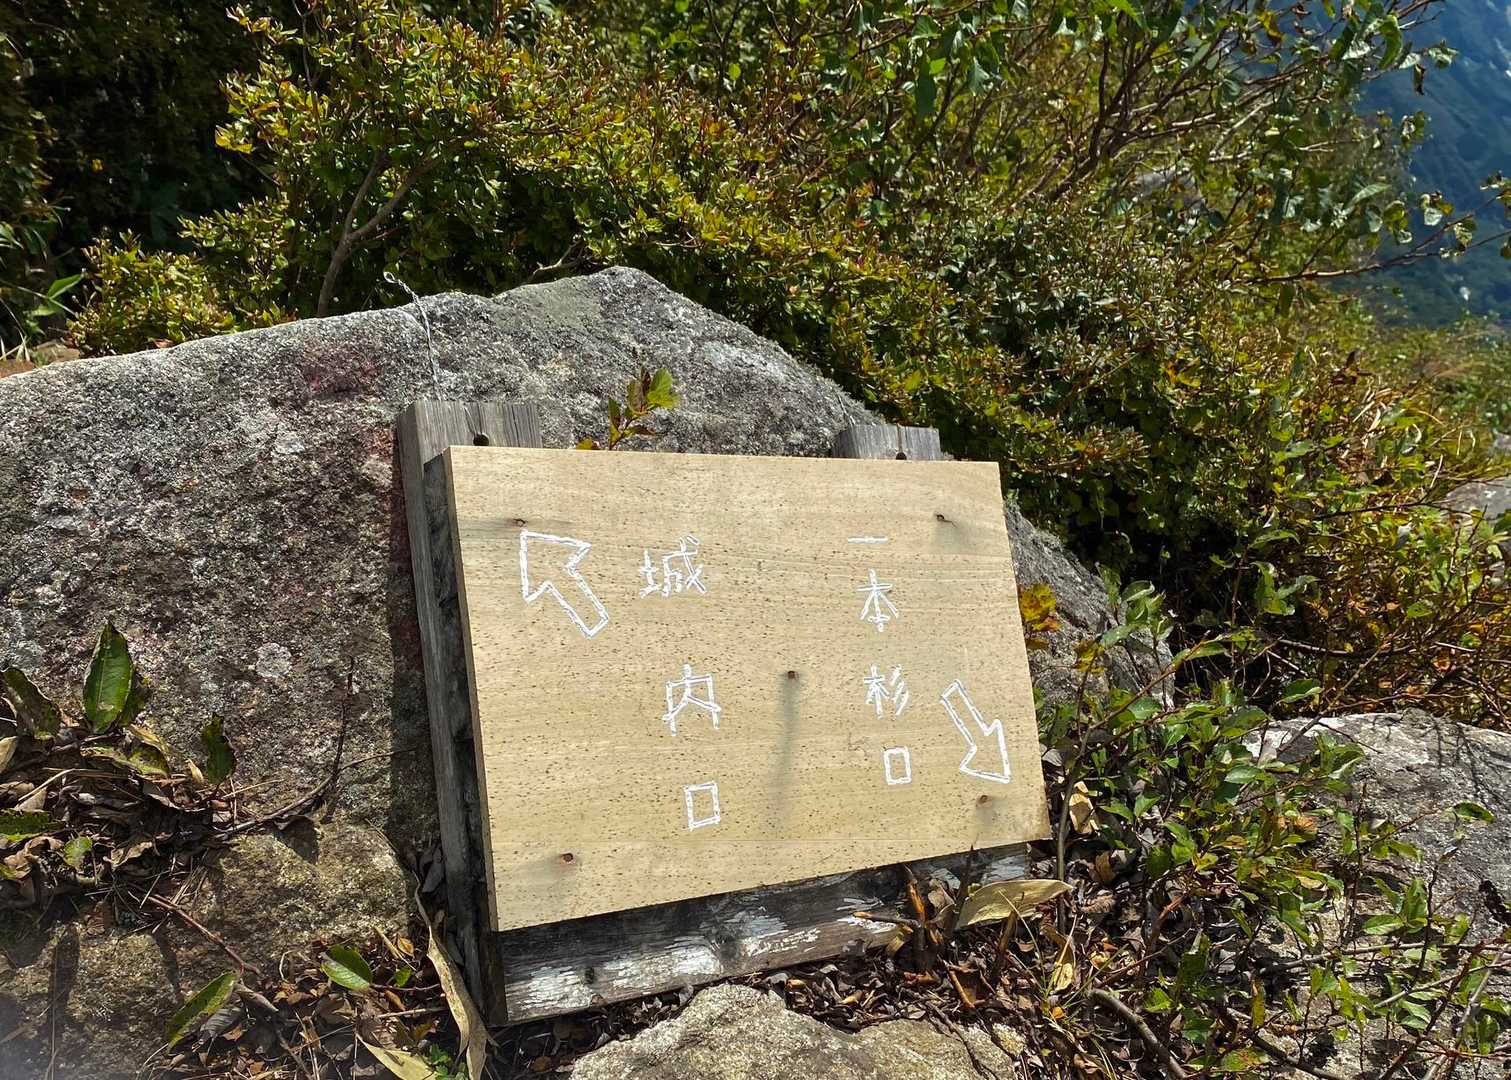 一本杉口
城内口